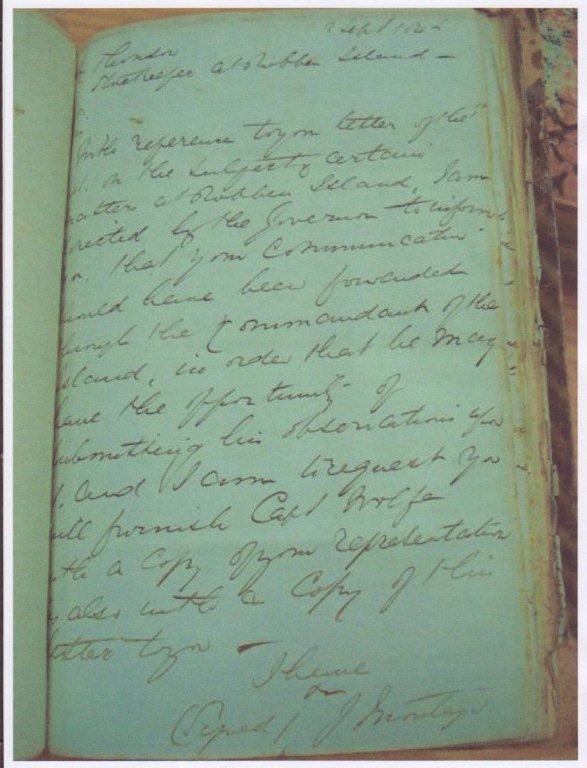 Sept 184
Storekeeper at Robben Island —
With reference to your letter of the
on the subject of certain
matters at Robben Island, I am
rected by the Governor to inform
that your Communication
ould have been forwarded
rough the Commandant of the
sland, in order that he may
have the opportunity of
submitting his observations upon
it. and I am to request you
will furnish Capt Wolfe
with a Copy of your representation
also with a Copy of this
etter to you —
I have
(Signed) J Montagu